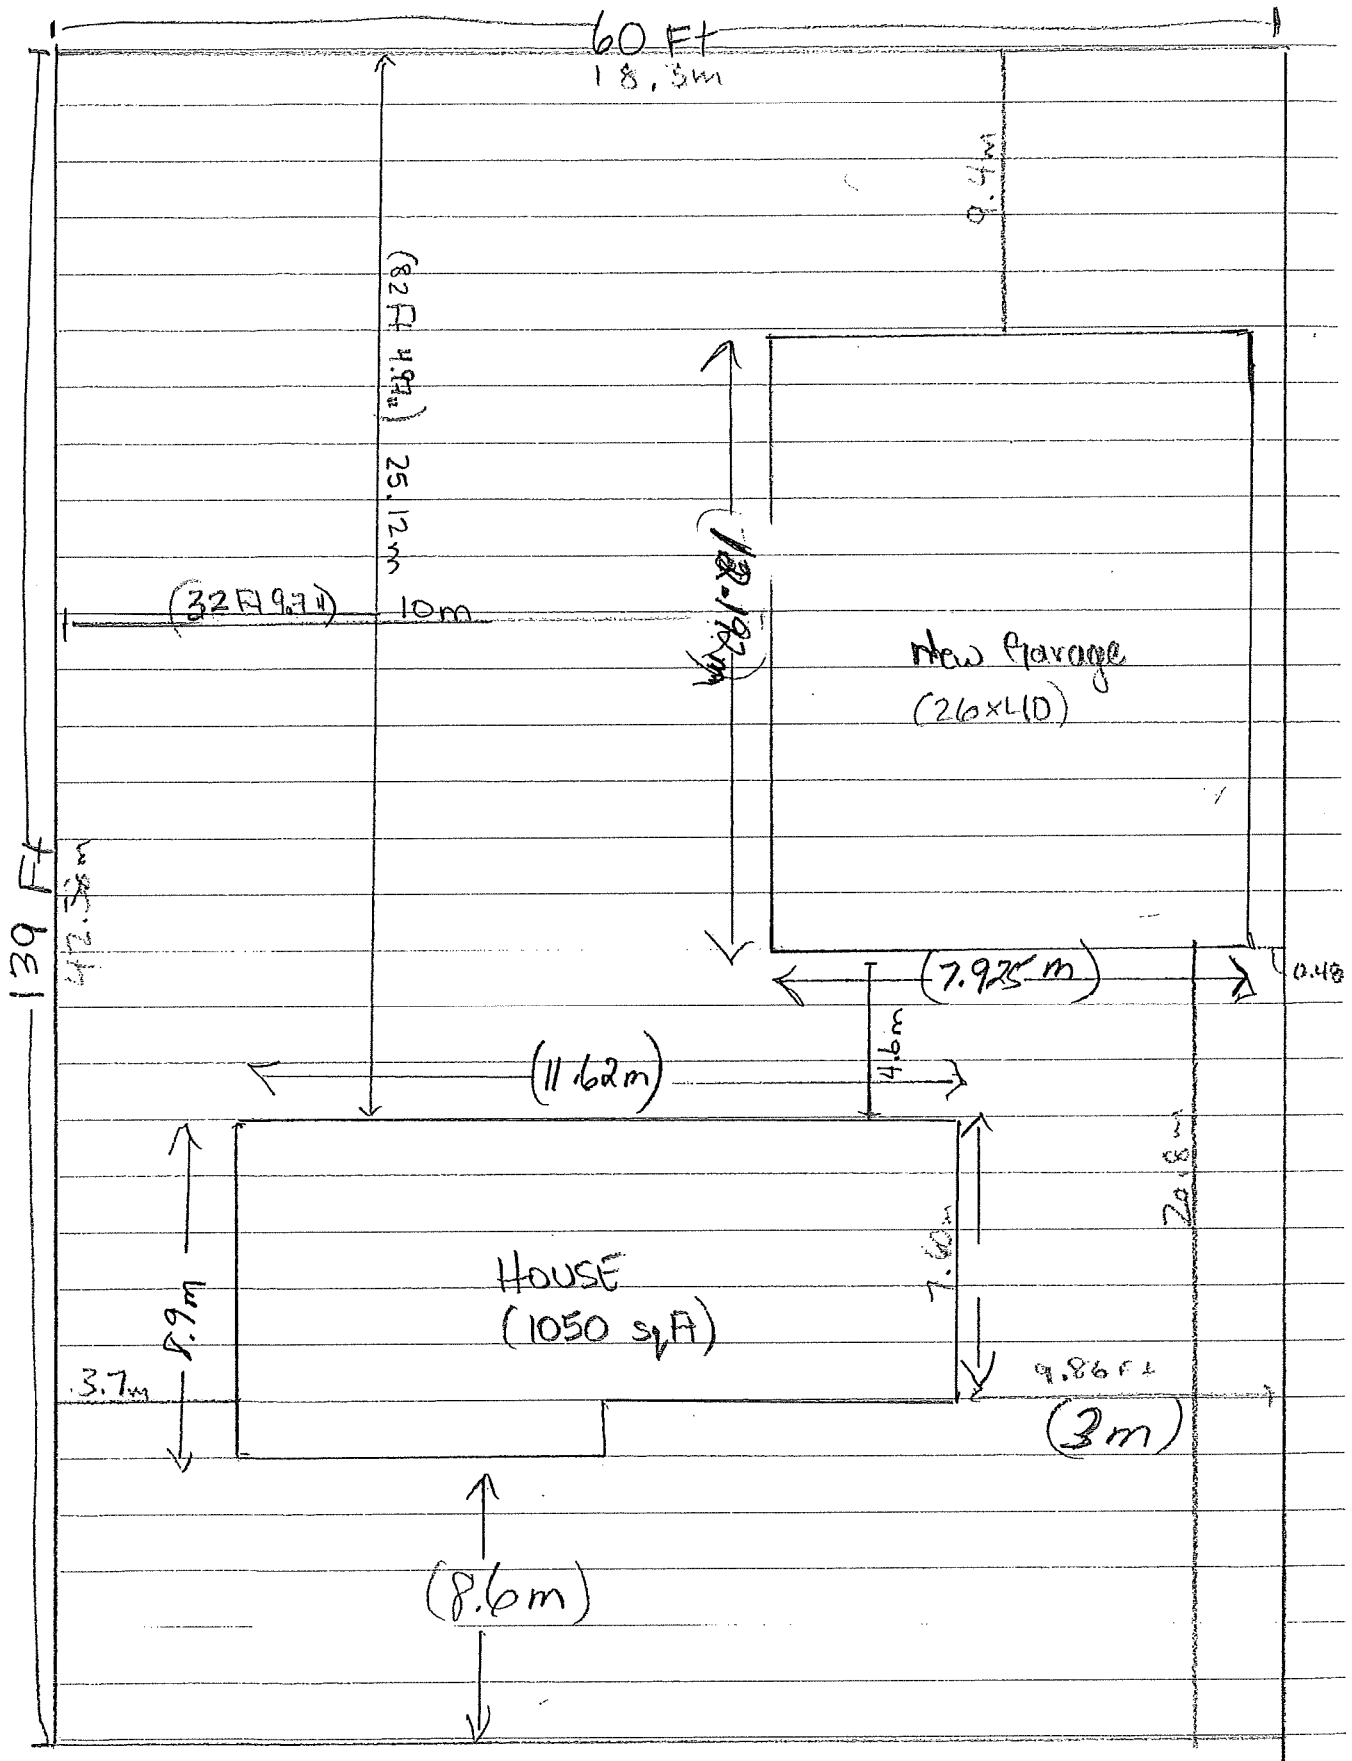 60 Ft
18.3m
9.4m
(82 Ft 4.97") 25.12m
(32 Ft 9.7") 10m
New Garage
(26x40)
139 Ft
42.38m
(7.925m)
0.48
4.6m
(11.62m)
20.8m
8.9m
HOUSE
(1050 sqft)
7.60m
3.7m
9.86 Ft
(3m)
(8.6m)